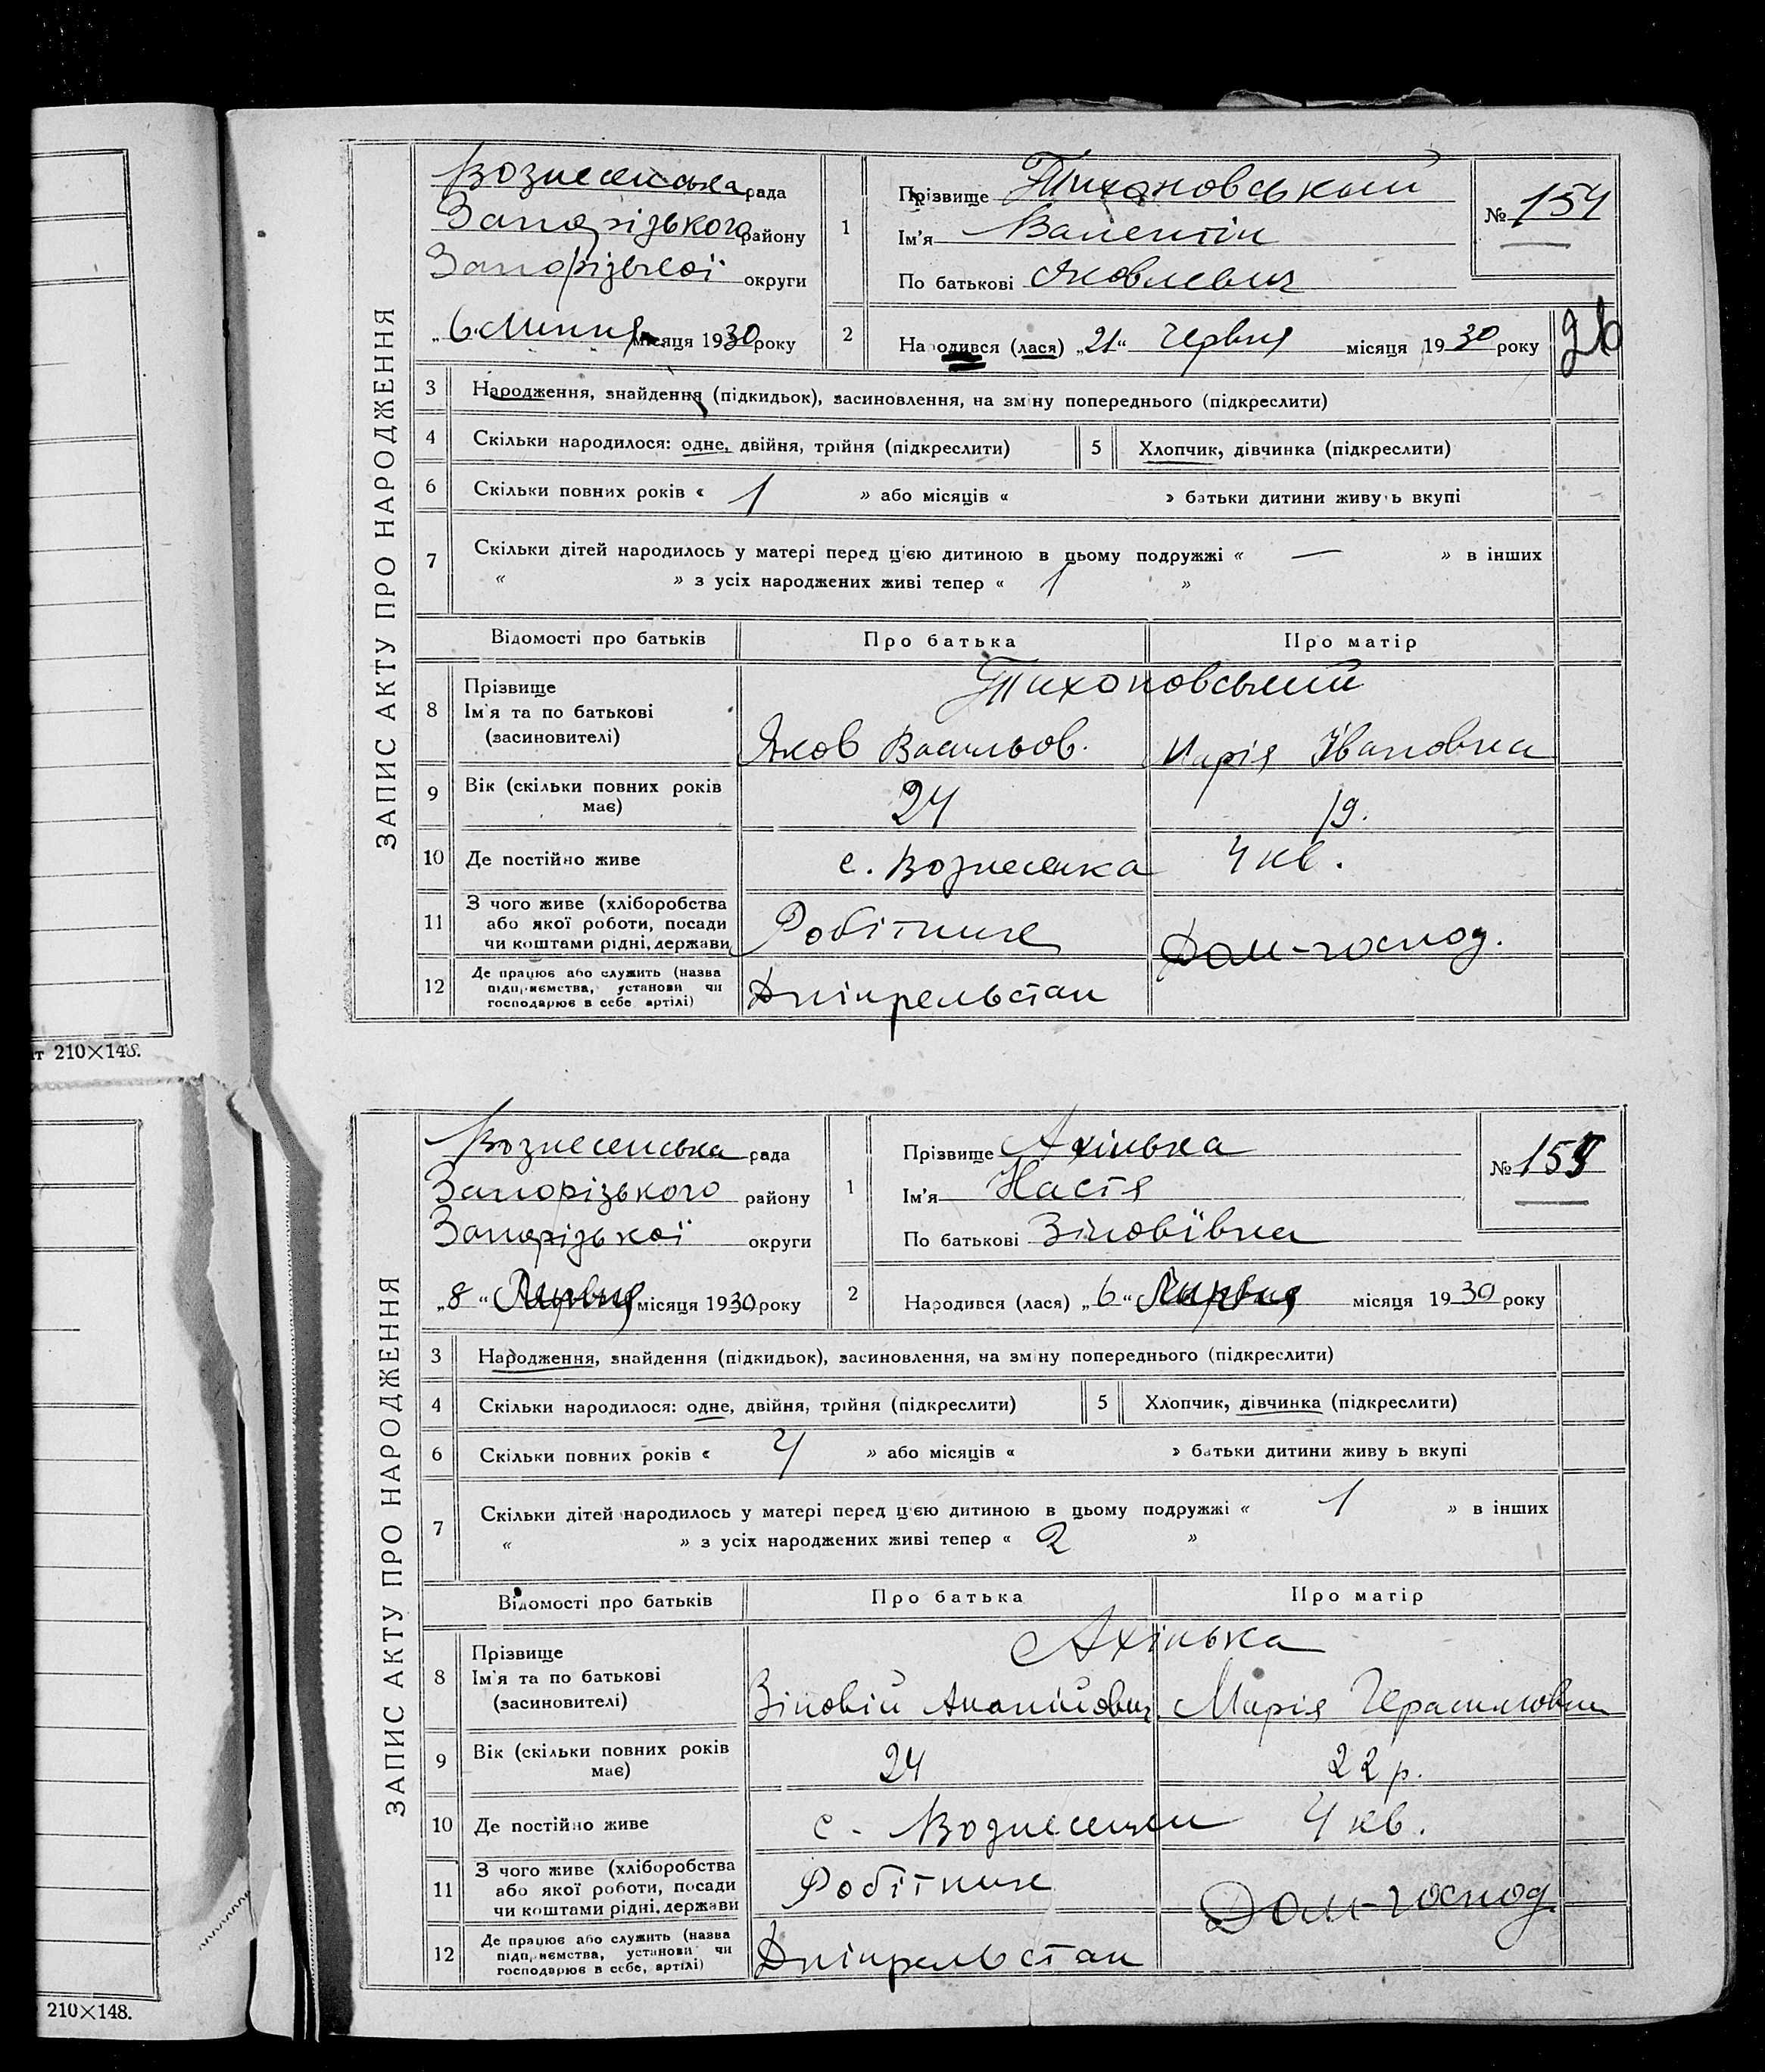 ЗАПИС АКТУ ПРО НАРОДЖЕННЯ
Вознесенська рада
Запорізького району
Запорізької округи
„6" Липня місяця 1930 року
1
Прізвище Тихоновський
Ім'я Валентін
По батькові Яковлевич
№ 154
2
Народився (лася) „21" Червня місяця 1930 року
3 Народження, знайдення (підкидьок), засиновлення, на зміну попереднього (підкреслити)
4 Скільки народилося: одне, двійня, трійня (підкреслити) 5 Хлопчик, дівчинка (підкреслити)
6 Скільки повних років « 1 » або місяців « » батьки дитини живуть вкупі
7 Скільки дітей народилось у матері перед цією дитиною в цьому подружжі « — » в інших
« » з усіх народжених живі тепер « 1 »
Відомості про батьків Про батька Про матір
8 Прізвище
Ім'я та по батькові
(засиновителі)
Тихоновський
Яков Васильов. Марія Івановна
9 Вік (скільки повних років
має)
24 19.
10 Де постійно живе с. Вознесенка 4 кв.
11 З чого живе (хліборобства
або якої роботи, посади
чи коштами рідні, держави
Робітник Дом-господ.
12 Де працює або служить (назва
підприємства, установи чи
господарює в себе артілі)
Дніпрельстан
т 210×148.
ЗАПИС АКТУ ПРО НАРОДЖЕННЯ
Вознесенська рада
Запорізького району
Запорізької округи
„8" місяця 1930 року
1
Прізвище Ахінька
Ім'я Настя
По батькові Зіновівна
№ 155
2
Народився (лася) „6" місяця 1930 року
3 Народження, знайдення (підкидьок), засиновлення, на зміну попереднього (підкреслити)
4 Скільки народилося: одне, двійня, трійня (підкреслити) 5 Хлопчик, дівчинка (підкреслити)
6 Скільки повних років « 4 » або місяців « » батьки дитини живу ь вкупі
7 Скільки дітей народилось у матері перед цією дитиною в цьому подружжі « 1 » в інших
« » з усіх народжених живі тепер « 2 »
Відомості про батьків Про батька Про матір
8 Прізвище
Ім'я та по батькові
(засиновителі)
Ахінька
Зіновій Ананійович Марія Герасимовна
9 Вік (скільки повних років
має)
24 22 р.
10 Де постійно живе с. Вознесенка 4 кв.
11 З чого живе (хліборобства
або якої роботи, посади
чи коштами рідні, держави
Робітник Дом-господ
12 Де працює або служить (назва
підприємства, установи чи
господарює в себе, артілі)
Дніпрельстан
210×148.